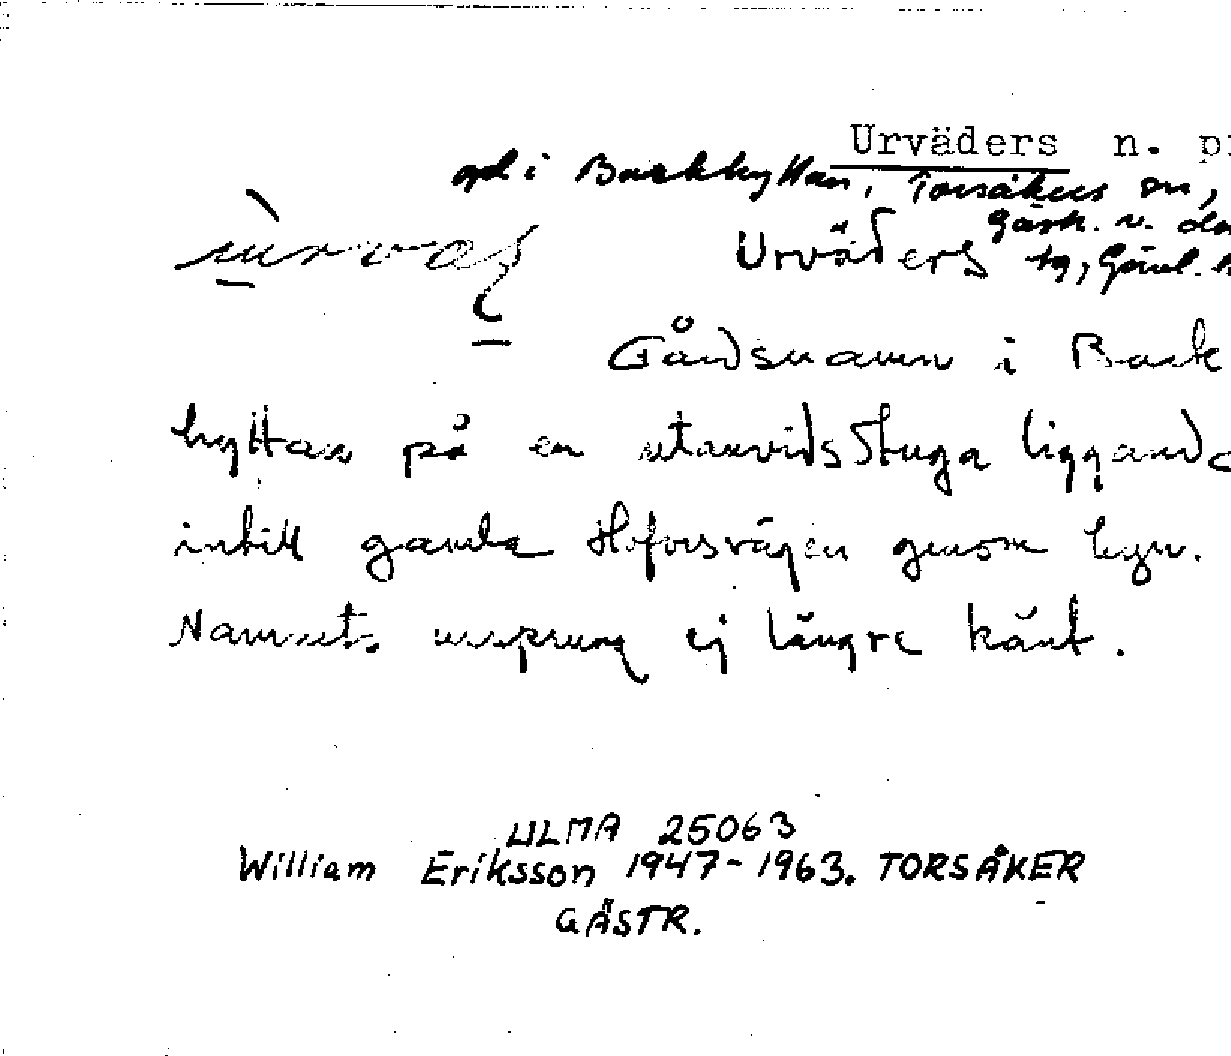 Urväders n. pr
gd i Backhyttan, Torsåkers sn,
Gästr. v. dom
Urväders tg, Gävl. l
Gårdsnamn i Back
hyttan på en utanvidsstuga liggande
intill gamla Hoforsvägen genom byn.
Namnets ursprung ej längre känt.
ULMA 25063
William Eriksson 1947-1963. TORSÅKER
GÄSTR.